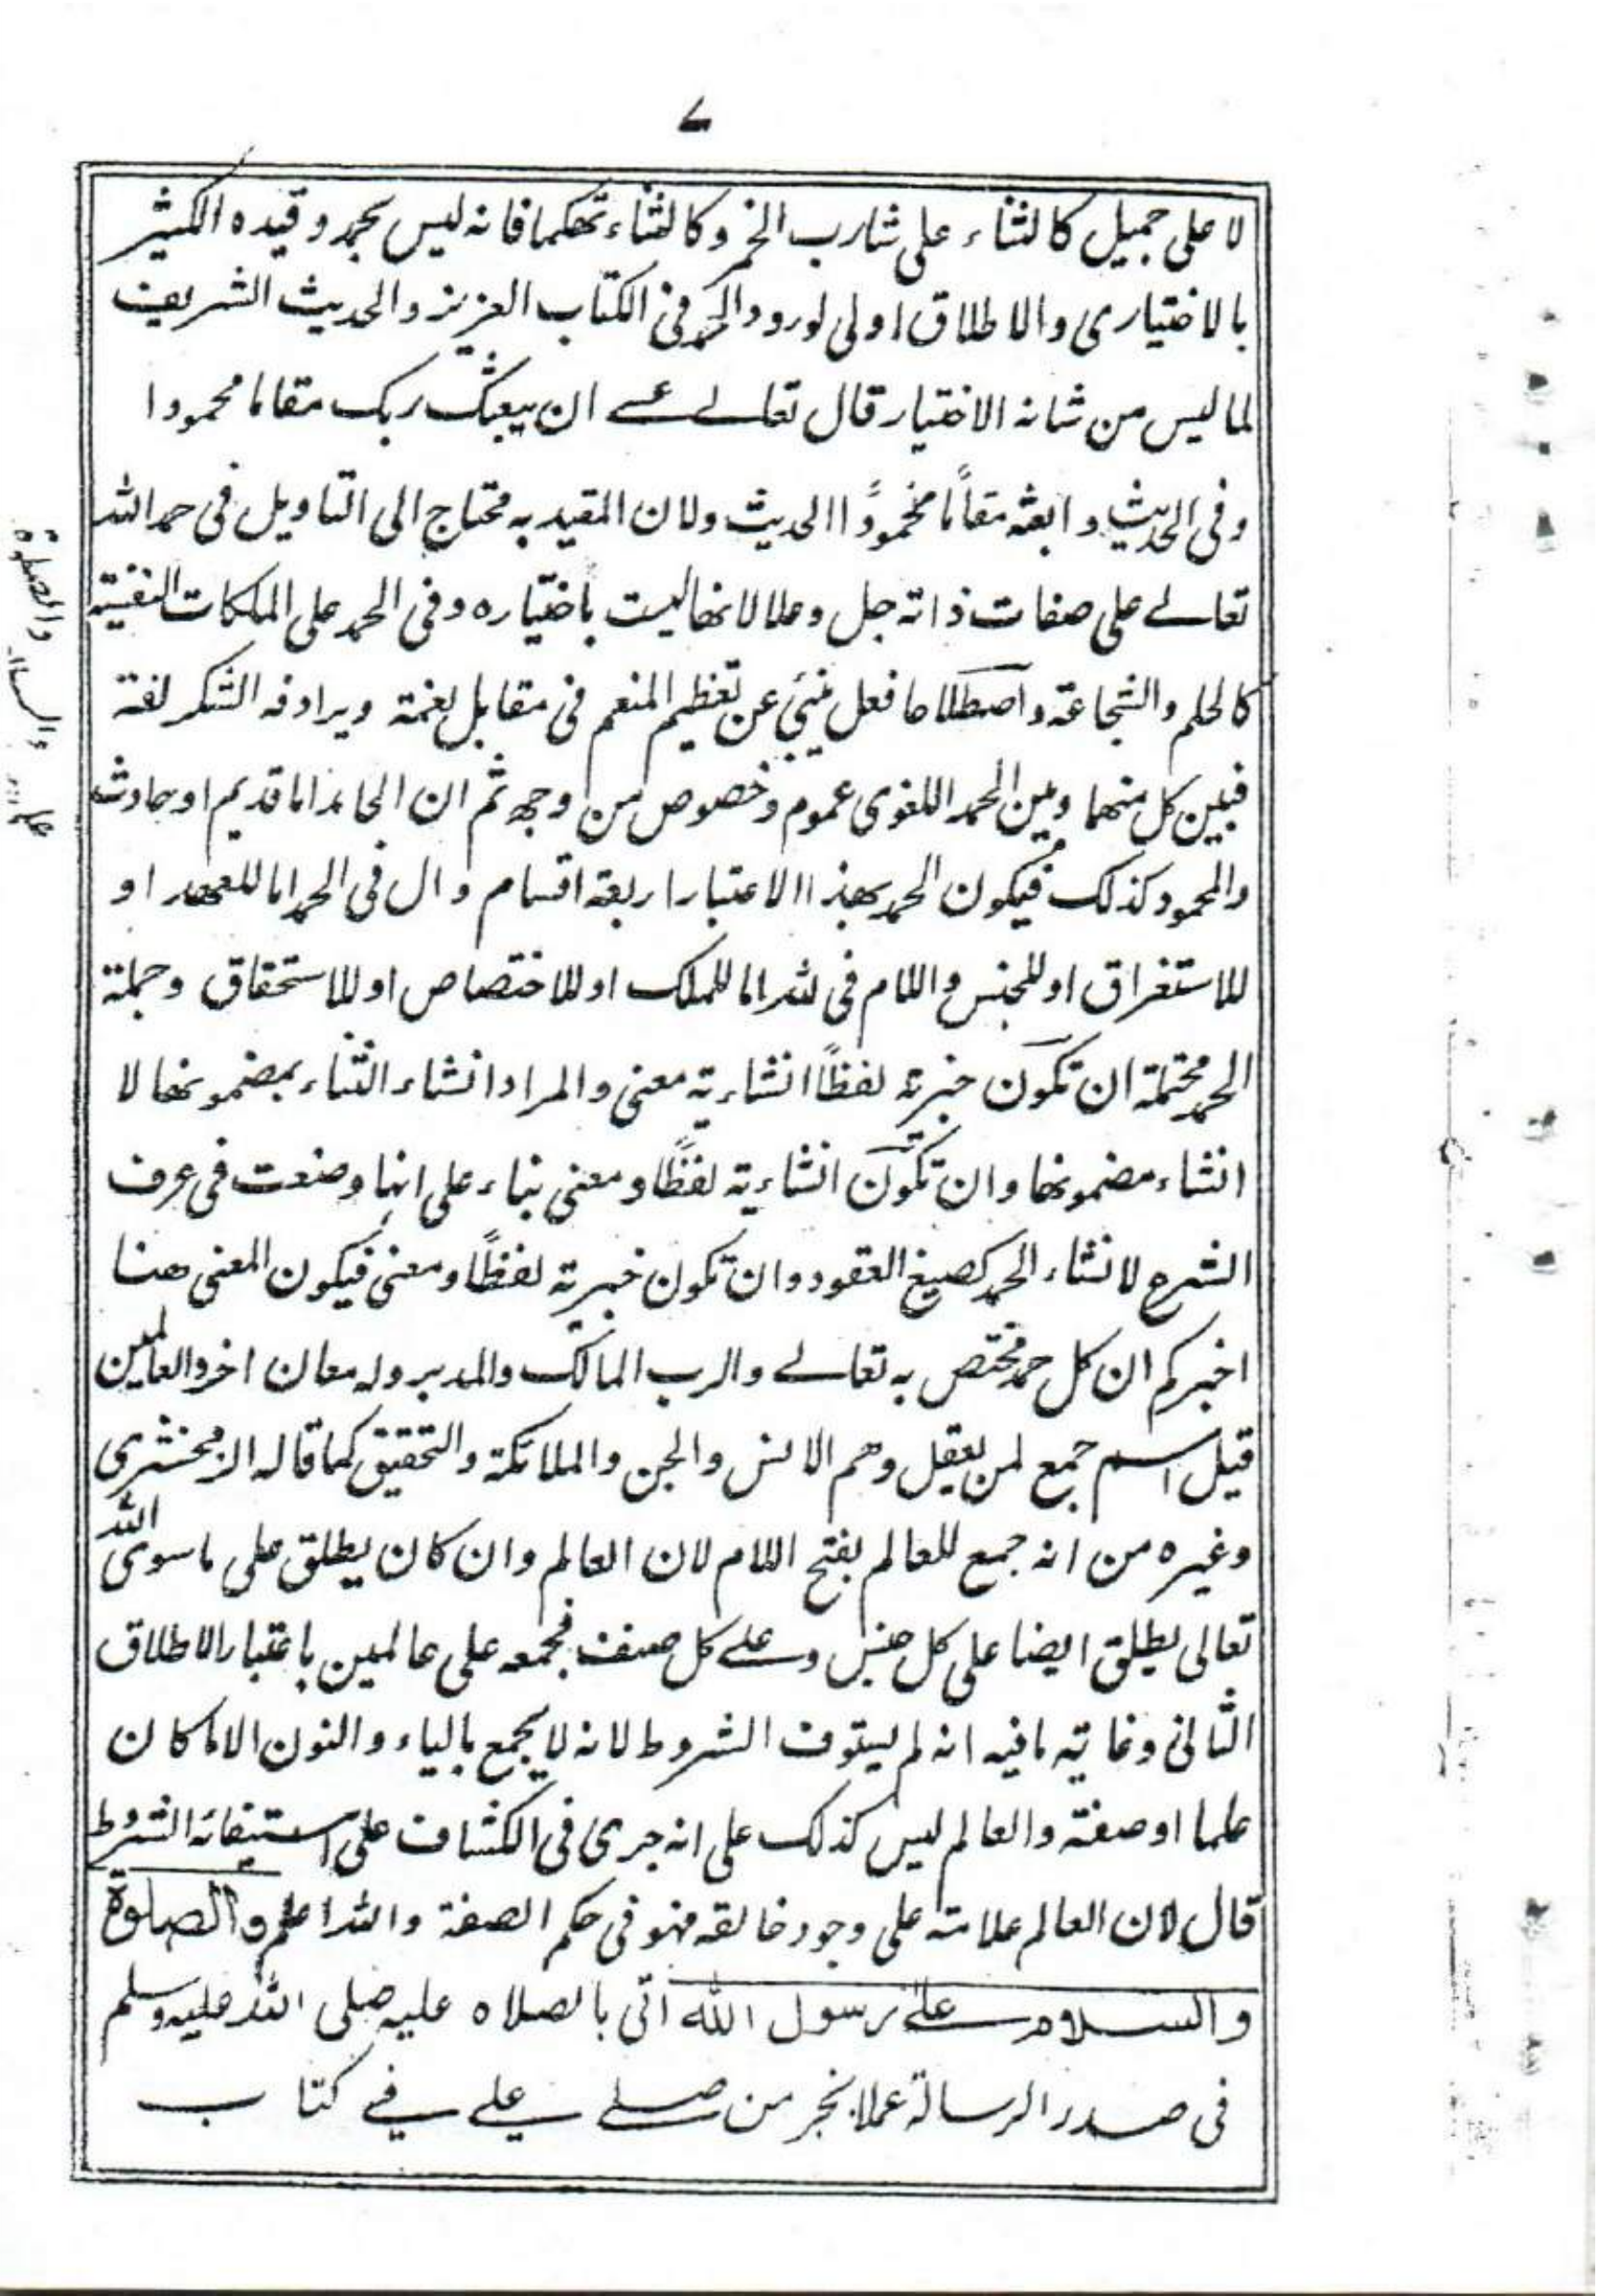 ے
لا على جميل كالثناء على شارب الخمر وكالثناء تهكما فانه ليس بحمد وقيده الكثير
بالاختيارى والاطلاق اولى لورود الحمد فى الكتاب العزيز والحديث الشريف
لما ليس من شانه الاختيار قال تعالے عسے ان يبعثك ربك مقاما محمودا
وفى الحديث وابعثه مقامًا محمودًا الحديث ولان المقيد به محتاج الى التاويل فى حمد الله
تعالے على صفات ذاته جل وعلا لانها ليست باختياره وفى الحمد على الملكات النفسية
كالحلم والشجاعة واصطلاحا فعل ينبئ عن تعظيم المنعم فى مقابل نعمة ويرادفه الشكر لغة
فبين كل منهما وبين الحمد اللغوى عموم وخصوص من وجه ثم ان الحامد اما قديم او حادث
والمحمود كذلك فيكون الحمد بهذا الاعتبار اربعة اقسام وال فى الحمد اما للعهد او
للاستغراق او للجنس واللام فى لله اما للملك او للاختصاص او للاستحقاق وجملة
الحمد محتملة ان تكون خبرية لفظًا انشاءية معنى والمراد انشاء الثناء بمضمونها لا
انشاء مضمونها وان تكون انشاءية لفظًا ومعنى بناء على انها وضعت فى عرف
الشرع لانشاء الحمد كصيغ العقود وان تكون خبرية لفظًا ومعنى فيكون المعنى هنا
اخبركم ان كل حمد مختص به تعالے والرب المالك والمدبر وله معان اخر والعالمين
قيل اسم جمع لمن يعقل وهم الانس والجن والملائكة والتحقيق كما قاله الزمخشرى
وغيره من انه جمع للعالم بفتح اللام لان العالم وان كان يطلق على ما سوى الله
تعالى يطلق ايضا على كل جنس وعلے كل صنف فجمعه على عالمين باعتبار الاطلاق
الثانى وغايته ما فيه انه لم يستوف الشروط لانه لا يجمع بالياء والنون الا ما كان
علما او صفة والعالم ليس كذلك على انه جرى فى الكشاف على استيفائه الشروط
قال لان العالم علامته على وجود خالقه فهو فى حكم الصفة والله اعلم والصلوة
والسلام علے رسول الله اتى بالصلاه عليه صلى الله عليه وسلم
فى صدر الرسالة عملا بخبر من صلے علے فے كتاب
والصلوة
والسلا
على